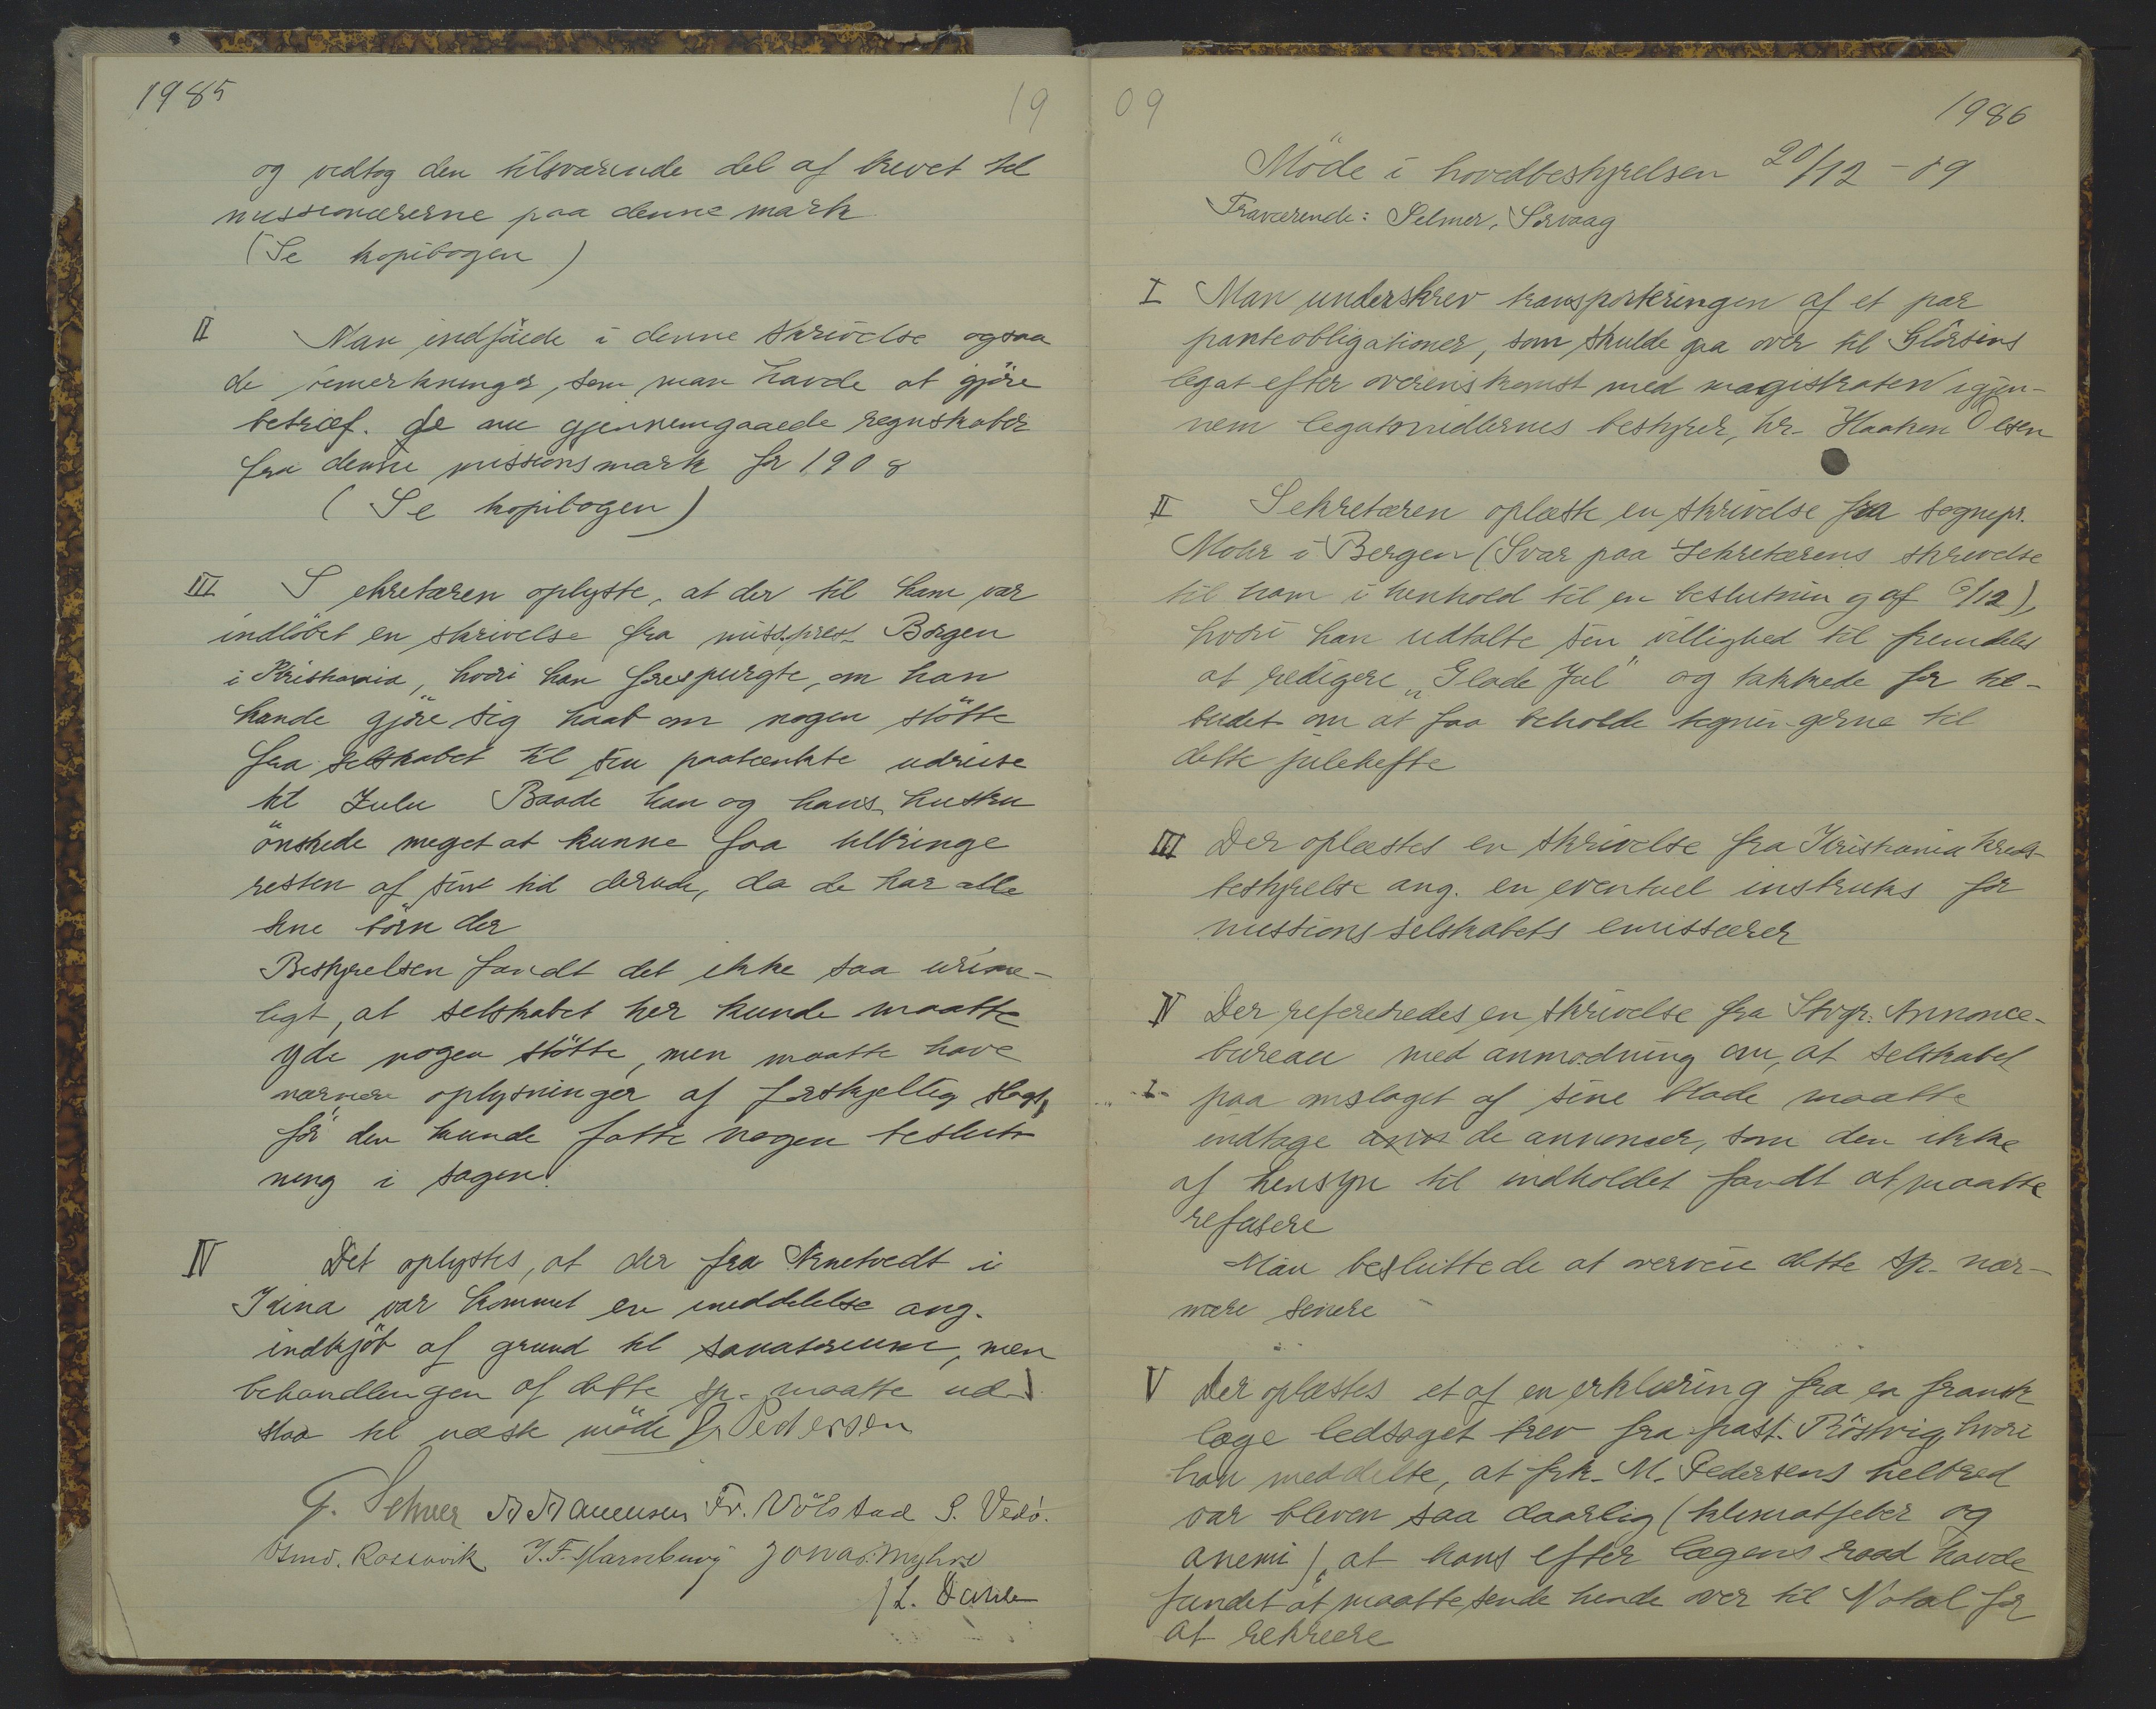 1985
19
og vedtog den tilsvarende del af brevet til
missionærerne paa denne mark
(Se kopibogen)
II Man indføiede i denne skrivelse ogsaa
de bemerkninger, som man havde at gjøre
betræf. de nu gjennemgaaede regnskaber
fra denne missionsmark for 1908
(Se kopibogen)
III Sekretæren oplyste, at der til ham var
indløbet en skrivelse fra miss.prest Borgen
i Kristiania, hvori han forespurgte, om han
kunde gjøre sig haab om nogen støtte
fra selskabet til sin paatænkte udreise
til Zulu Baade han og hans hustru
ønskede meget at kunne faa tilbringe
resten af sin tid derude, da de har alle
sine børn der
Bestyrelsen fandt det ikke saa urime-
ligt, at selskabet her kunde maatte
yde nogen støtte, men maatte have
nærmere oplysninger af forskjellig slags,
før den kunde fatte nogen beslut-
ning i sagen.
IV Det oplystes, at der fra Arnetvedt i
Kina var kommet en meddelelse ang.
indkjøb af grund til sanatorium, men
behandlingen af dette sp. maatte ud-
staa til næste møde Pedersen
G. Selmer Fr. Völstad S. Vedø.
Rossavik J. F. Jonas Myhre
L. Dahle
09
1986
Møde i hovedbestyrelsen 20/12 - 09
Fraværende: Selmer, Sørvaag
I Man underskrev transporteringen af et par
panteobligationer, som skulde gaa over til
legat efter overenskomst med magistraten igjen-
nem legatsmidlernes bestyrer, hr. Haakon Olsen
II Sekretæren oplæste en skrivelse fra sognepr.
Mohr i Bergen (Svar paa Sekretærens skrivelse
til ham i henhold til en beslutning af 6/12),
hvori han udtalte sin villighed til fremdeles
at redigere "Glade Jul" og takkede for til-
budet om at faa beholde tegningerne til
dette julehefte
III Der oplæstes en skrivelse fra Kristiania kreds-
bestyrelse ang. en eventuel instruks for
missionsselskabets emissærer
IV Der refereredes en skrivelse fra Stvgr. Annonce-
bureau med anmodning om, at selskabet
paa omslaget af sine blade maatte
indtage de annoncer, som den ikke
af hensyn til indholdet fandt at maatte
refusere
Man besluttede at overveie dette sp. nær-
mere senere
V Der oplæstes et af en erklæring fra en fransk
læge ledsaget brev fra past. Röstvig, hvori
han meddelte, at frk. M. Pedersens helbred
var bleven saa daarlig (klimatfeber og
anemi), at hans efter lægens raad havde
fundet at maatte sende hende over til Natal for
at rekreere